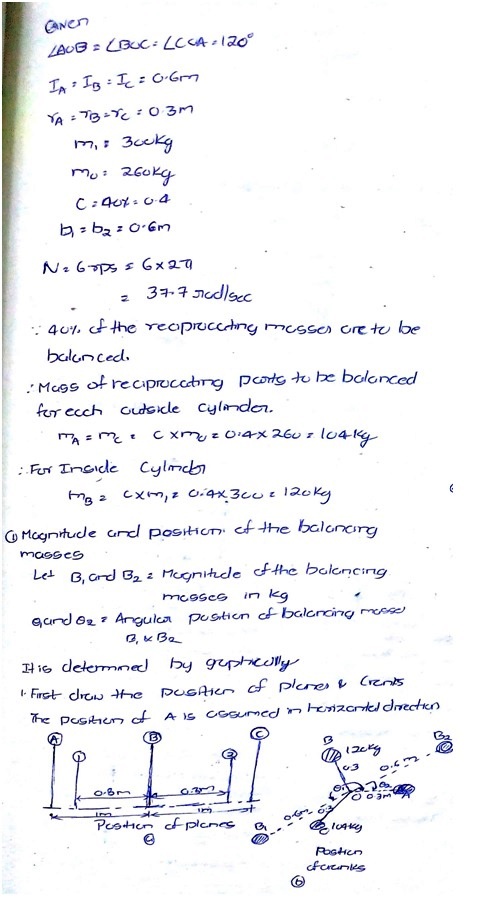 Given
∠AOB = ∠BOC = ∠COA = 120°
I_A = I_B = I_C = 0.6m
r_A = r_B = r_C = 0.3m
m₁ = 300kg
m₀ = 260kg
C = 40% = 0.4
b₁ = b₂ = 0.6m
N = 6 rps = 6×2π
= 37.7 rad/sec
∵ 40% of the reciprocating masses are to be
balanced.
∴ Mass of reciprocating parts to be balanced
for each outside cylinder.
m_A = m_C = C × m₀ = 0.4 × 260 = 104kg
∴ For Inside Cylinder
m_B = C×m₁ = 0.4×300 = 120kg
① Magnitude and position of the balancing
masses
Let B₁ and B₂ = Magnitude of the balancing
masses in kg
θ₁ and θ₂ = Angular position of balancing masses
B₁ & B₂
It is determined by graphically
1. First draw the position of planes & Cranks
The position of A is assumed in horizontal direction
A 1 B 2 C
0.8m 0.8m
1m 1m
Position of planes
B 120kg B₂
0.3 0.6m
θ₁ θ₂
O 0.3m A
0.6m 0.3
B₁ C 104kg
Position
of cranks
ⓑ